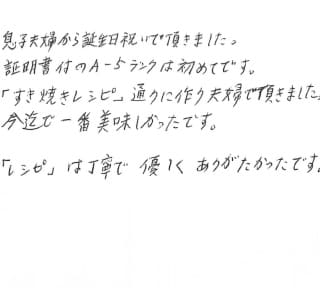 息子夫婦から誕生日祝いで頂きました。
証明書付のA-5ランクは初めてです。
「すき焼きレシピ」通りに作り夫婦で頂きました。
今迄で一番美味しかったです。
「レシピ」は丁寧で 優しく ありがたかったです。